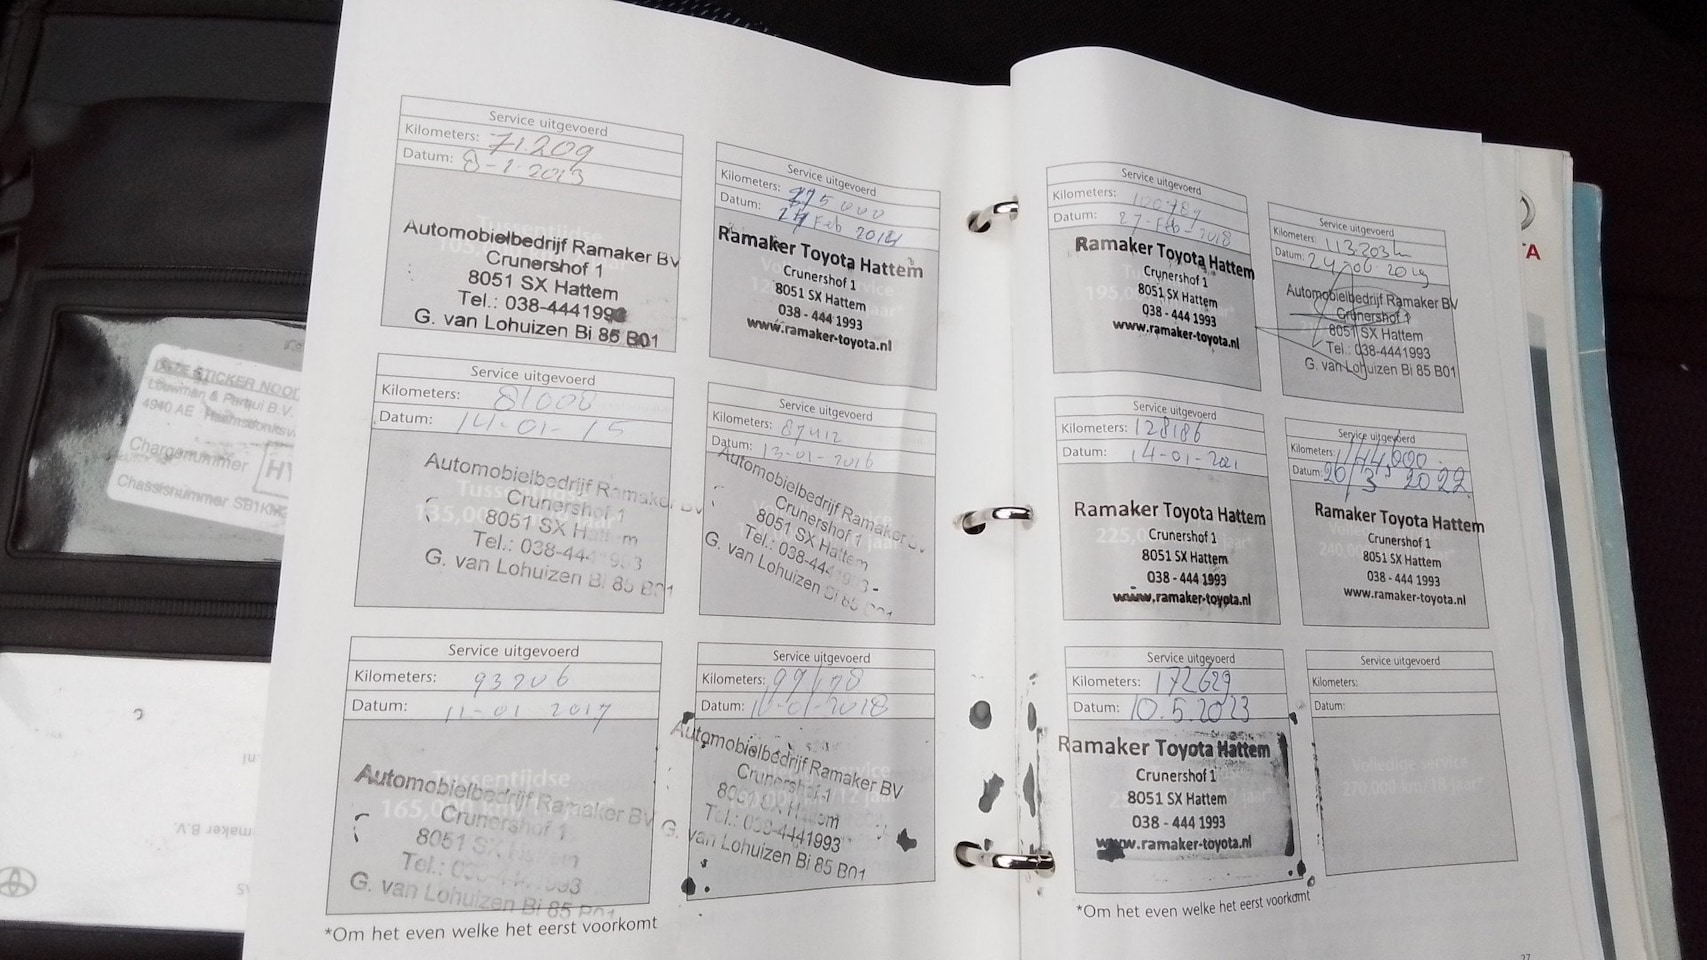 Service uitgevoerd
Kilometers: 71.209
Datum: 8-1-2013
Tussentijdse
Automobielbedrijf Ramaker BV
Crunershof 1
8051 SX Hattem
Tel.: 038-4441993
G. van Lohuizen Bi 85 B01
Service uitgevoerd
Kilometers: 75000
Datum: Feb 2014
Ramaker Toyota Hattem
Crunershof 1
8051 SX Hattem
038 - 444 1993
www.ramaker-toyota.nl
Service uitgevoerd
Kilometers: 81000
Datum: 14-01-15
Tussentijdse
135,000
Automobielbedrijf Ramaker BV
Crunershof 1
8051 SX Hattem
Tel.: 038-4441993
G. van Lohuizen Bi 85 B01
Service uitgevoerd
Kilometers: 87412
Datum: 13-01-2016
Automobielbedrijf Ramaker BV
Crunershof 1
8051 SX Hattem
Tel.: 038-4441993
G. van Lohuizen Bi 85 B01
Service uitgevoerd
Kilometers: 93206
Datum: 11-01 2017
Tussentijdse
165,000
Automobielbedrijf Ramaker BV
Crunershof 1
8051 SX Hattem
Tel.: 038-4441993
G. van Lohuizen Bi 85 B01
Service uitgevoerd
Kilometers: 99178
Datum: 10-01-2018
Automobielbedrijf Ramaker BV
Crunershof 1
8051 SX Hattem
Tel.: 038-4441993
G. van Lohuizen Bi 85 B01
*Om het even welke het eerst voorkomt
Service uitgevoerd
Kilometers:
Datum: 27-Feb-2018
195,000
Ramaker Toyota Hattem
Crunershof 1
8051 SX Hattem
038 - 444 1993
www.ramaker-toyota.nl
Service uitgevoerd
Kilometers: 113.203km
Datum: 24-06-2019
Automobielbedrijf Ramaker BV
Crunershof 1
8051 SX Hattem
Tel.: 038-4441993
G. van Lohuizen Bi 85 B01
Service uitgevoerd
Kilometers: 128186
Datum: 14-01-2021
225,000
Ramaker Toyota Hattem
Crunershof 1
8051 SX Hattem
038 - 444 1993
www.ramaker-toyota.nl
Service uitgevoerd
Kilometers: 144,000
Datum: 20/3 2022
240,000
Ramaker Toyota Hattem
Crunershof 1
8051 SX Hattem
038 - 444 1993
www.ramaker-toyota.nl
Service uitgevoerd
Kilometers: 172629
Datum: 10.5.2023
Ramaker Toyota Hattem
Crunershof 1
8051 SX Hattem
038 - 444 1993
www.ramaker-toyota.nl
Service uitgevoerd
Kilometers:
Datum:
Volledige service
270,000 km/18 jaar*
*Om het even welke het eerst voorkomt
27
DEZE STICKER NOOI
Louwman & Parqui B.V.
4940 AE Raamsdonksv
Chargenummer
Chassisnummer SB1KM
maker B.V.
TA